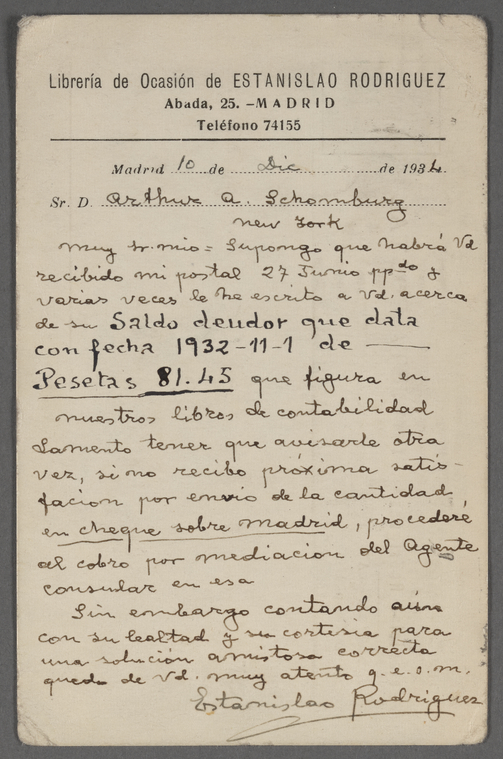 Librería de Ocasión de ESTANISLAO RODRIGUEZ
Abada, 25. - MADRID
Teléfono 74155
Madrid 10 de Dic de 1934.
Sr. D. Arthur A. Schomburg
New York
Muy sr. mio = Supongo que habrá Vd
recibido mi postal 27 Junio ppdo y
varias veces le he escrito a Vd. acerca
de su Saldo deudor que data
con fecha 1932-11-1 de —
Pesetas 81.45 que figura en
nuestros libros de contabilidad
Lamento tener que avisarle otra
vez, si no recibo próxima satis-
facion por envio de la cantidad
en cheque sobre Madrid, procederé
al cobro por mediacion del Agente
consular en esa
Sin embargo contando aún
con su lealtad y su cortesia para
una solución amistosa correcta
queda de Vd. muy atento q.e.s.m.
Estanislao Rodriguez